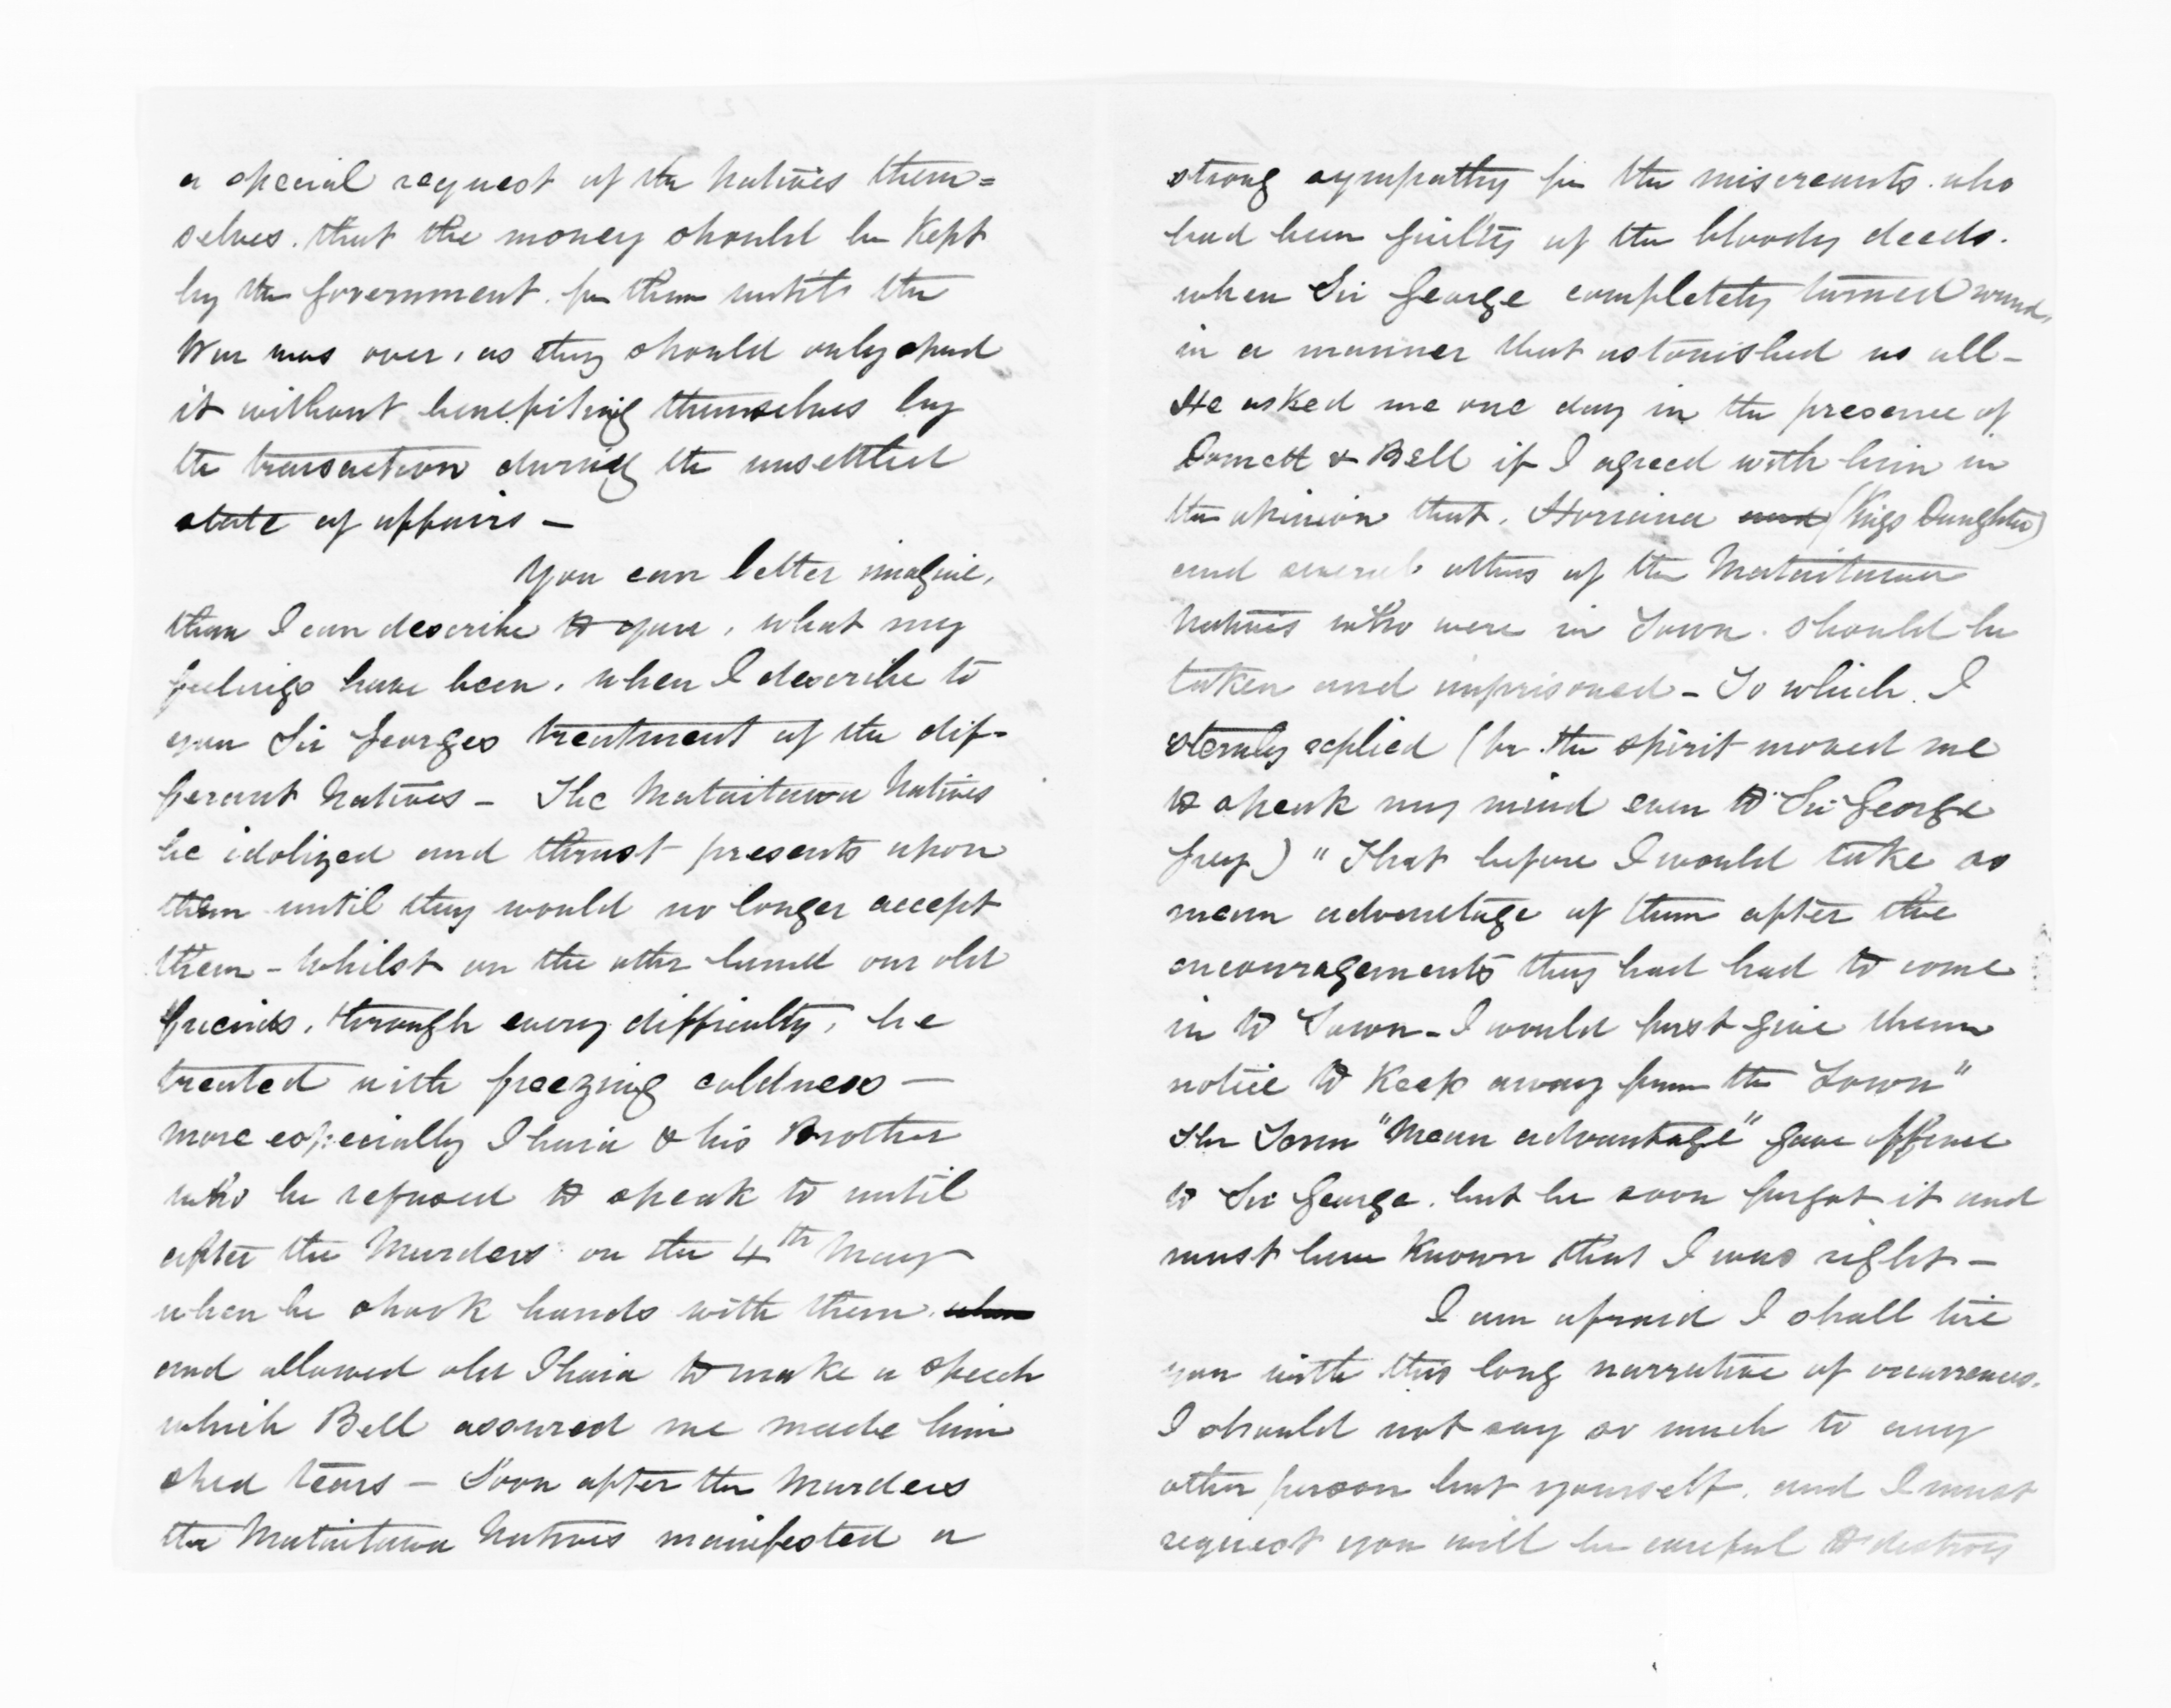 a special request of the Natives them=
selves. that the money should be Kept
by the Government. for them until the
War was over, as they should only spend
it without benefiting themselves by
the transaction during the unsettled
state of affairs -
You can better imagine,
than I can describe to you, what my
feelings have been, when I describe to
you Sir Georges treatment of the dif-
ferent Natives - The Mataitawa Natives
he idolized and thrust presents upon
them until they would no longer accept
them - Whilst on the other hand our old
friends, through every difficulty, he
treated with freezing coldness -
more especially Ihaia & his Brother
who he refused to speak to until
after the Murders on the 4th May
when he shook hands with them. when
and allowed old Ihaia to make a speech
which Bell assured me made him
shed tears - Soon after the Murders
the Mataitawa Natives manifested a
strong sympathy for the miscreants who
had been guilty of the bloody deeds.
when Sir George completely turned round,
in a manner that astonished us all -
He asked me one day in the presence of
Domett & Bell if I agreed with him in
the opinion that, and (Kings Daughter)
and several others of the Mataitawa
Natives who were in Town. should be
taken and imprisoned - To which I
sternly replied (for the spirit moved me
to speak my mind even to Sir George
Grey) "That before I would take so
mean advantage of them after the
encouragements they had had to come
in to Town - I would first give them
notice to Keep away from the Town"
The Term "Mean advantage" gave offence
to Sir George. but he soon forgot it and
must have Known that I was right -
I am afraid I shall tire
you with this long narrative of occurrences.
I should not say so much to any
other person but yourself. and I must
request you will be careful to destroy